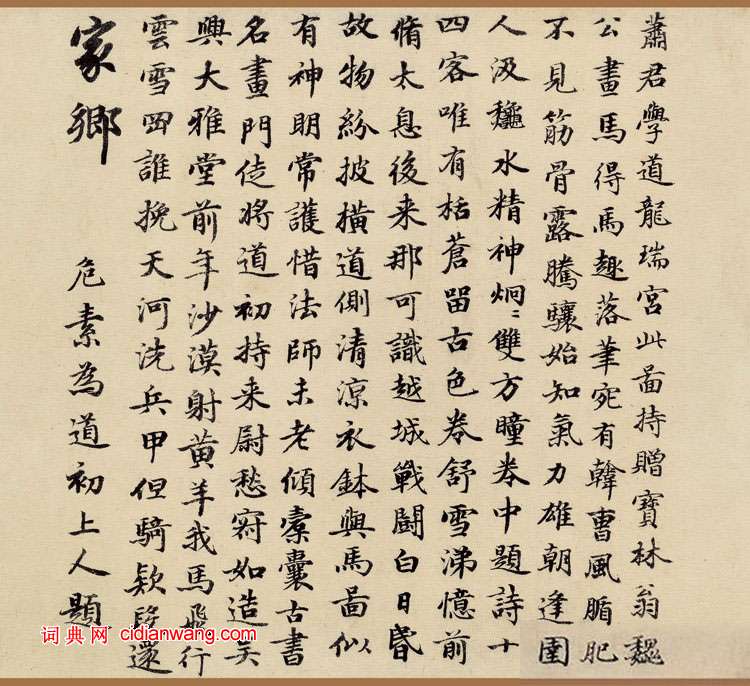 蕭君學道龍瑞宮此畣持贈寶林翁魏
公畫馬得馬趣落筆宛有韓曹風腯肥
不見筋骨露騰驤始知氣力雄朝逢圉
人汲龝水精神炯〻雙方瞳卷中題詩十
四客唯有栝蒼留古色卷舒雪涕憶前
脩太息後来那可識越城戰鬪白日昏
故物紛披橫道側清涼衣鉢與馬畣似
有神明常護惜法師未老傾橐囊古書
名畫門徒將道初持来尉愁寂如造矣
興大雅堂前年沙漠射黃羊我馬飛行
雲雪罡誰挽天河洗兵甲但騎款段還
家鄉
危素為道初上人題
词典网 cidianwang.com